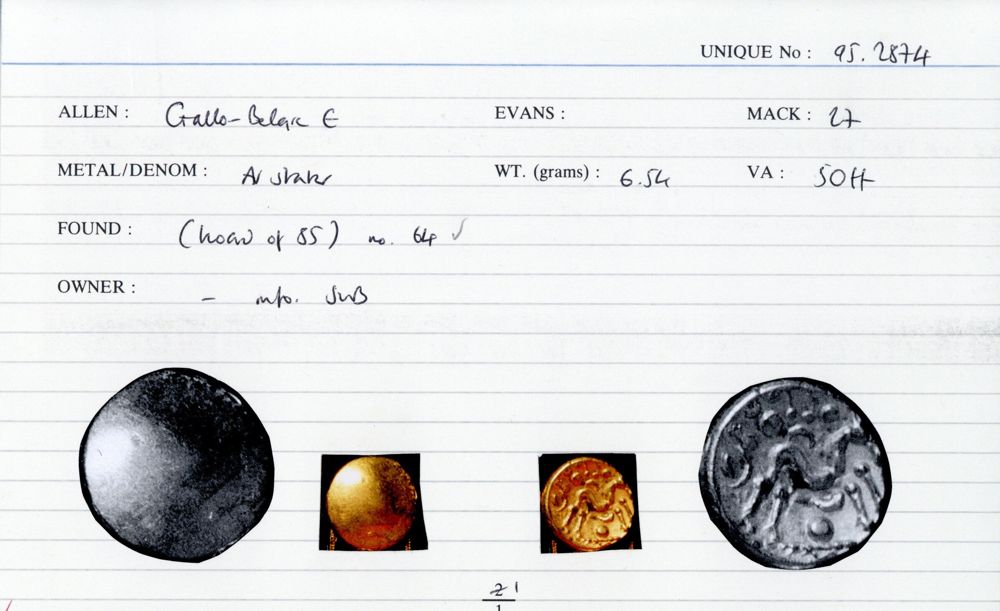 UNIQUE No : 95.2874
ALLEN : Gallo-Belgic E EVANS : MACK : 27
METAL/DENOM : AV stater WT. (grams) : 6.54 VA :
FOUND : (hoard of 85) no. 64 ✓
OWNER : – info. SWB